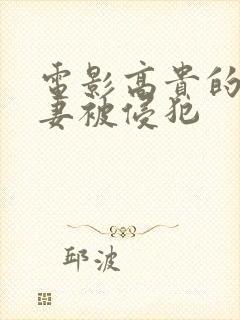 電影高貴的
妻被侵犯
邱波